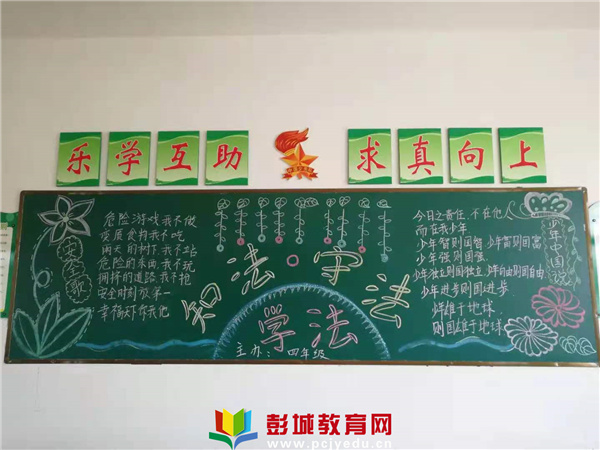 乐学互助
求真向上
安全歌
危险游戏我不做
变质食物我不吃
雨天的树下我不站
危险的东西我不玩
拥挤的道路我不抢
安全时刻放第一
幸福天下你我他
知法·守法
学法
主办：四年级
今日之责任，不在他人
而在我少年
少年智则国智 少年富则国富
少年强则国强
少年独立则国独立 少年自由则国自由
少年进步则国进步
少年雄于地球
则国雄于地球
少年中国说
彭城教育网
www.pcjyedu.cn